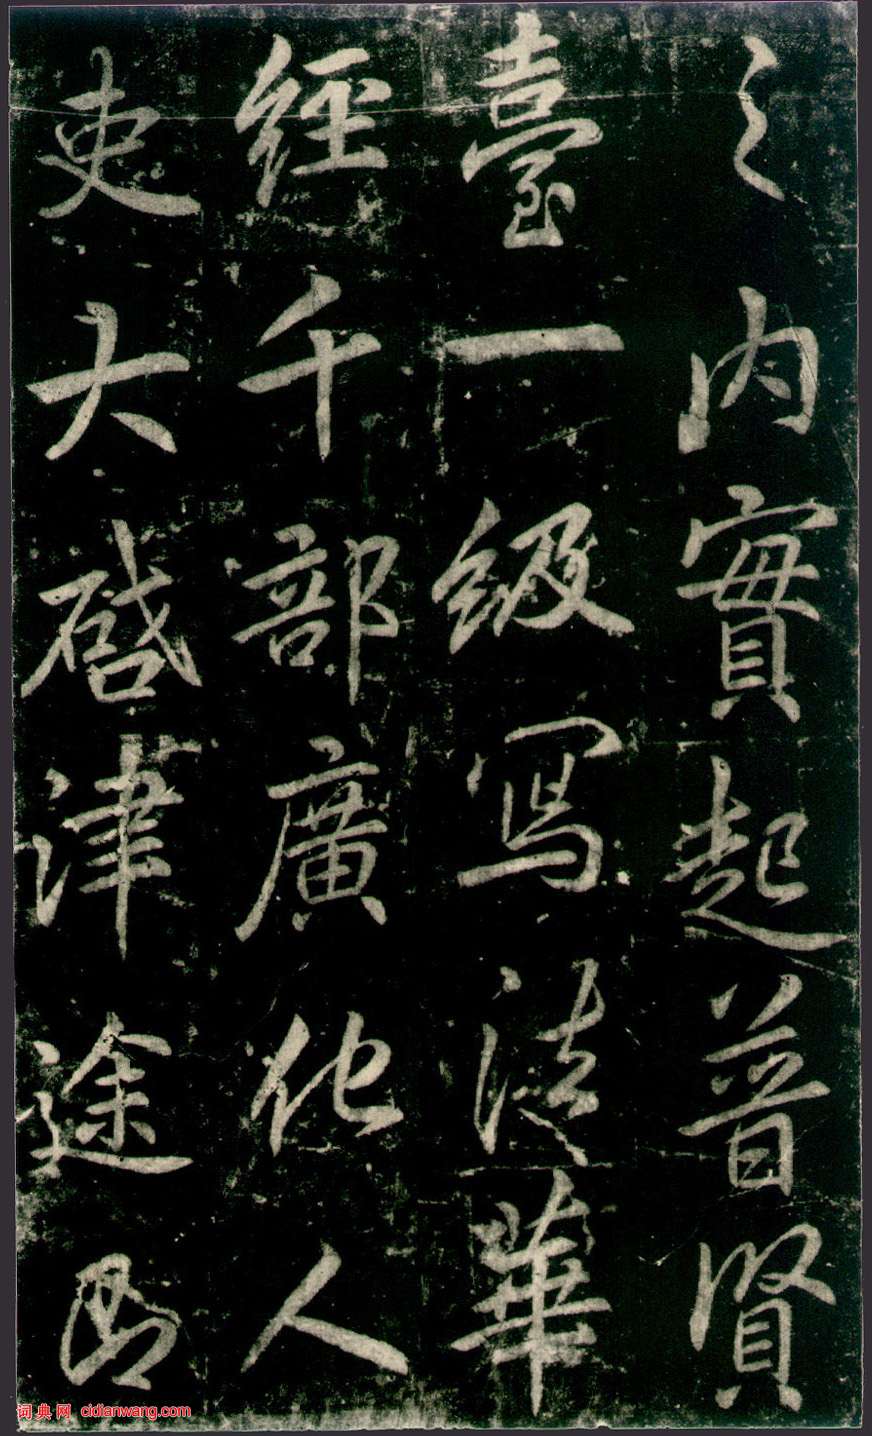 之内實起普賢
臺一級寫法華
經千部廣化人
吏大啓津途
词典网 cidianwang.com